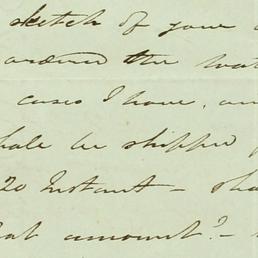 sketch of your
around the wat
cases I have, an
hale be shipped f
20 Instant — sha
hat amount? —